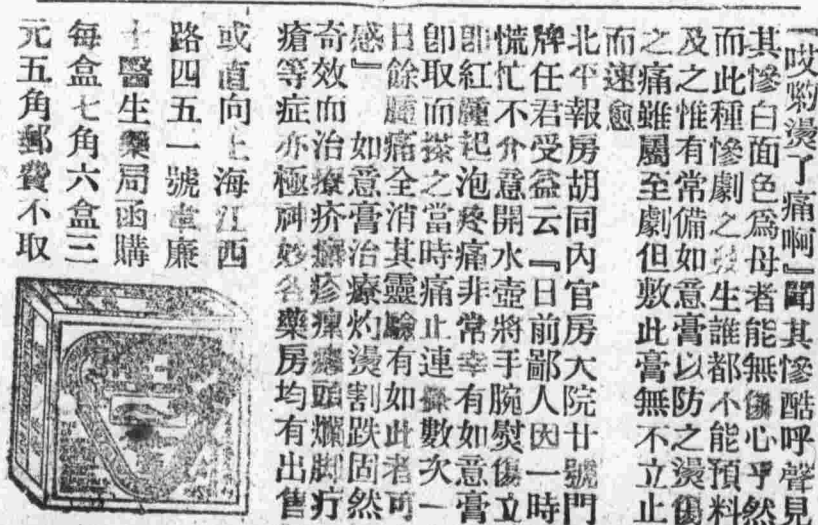 『哎喲燙了痛啊』聞其慘酷呼聲見
其慘白面色爲母者能無傷心乎然
而此種慘劇之發生誰都不能預料
及之惟有常備如意膏以防之燙傷
之痛雖屬至劇但敷此膏無不立止
而速愈
北平報房胡同內官房大院廿號門
牌任君受益云『日前鄙人因一時
慌忙不介意開水壺將手腕熨傷立
即紅腫起泡疼痛非常幸有如意膏
卽取而搽之當時痛止連搽數次一
日餘腫痛全消其靈驗有如此者可
感』　如意膏治療灼燙割跌固然
奇效而治療疥癬疹瘰癧頭爛脚疔
瘡等症亦極神妙各藥房均有出售
或直向上海江西
路四五一號韋廉
士醫生藥局函購
每盒七角六盒三
元五角郵費不取